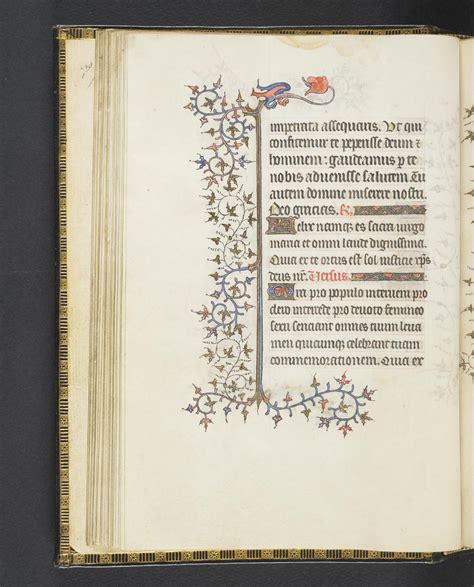 impetrata assequaris. Ut qui
confitemur te peperisse deum ⁊
hominem : gaudeamus p te
nobis advenisse salutem Tu
autem domine miserere nostri
Deo gracias. R.
Felix namque es sacra virgo
maria et omni laude dignissima.
Quia ex te ortus est sol iusticie xp̄s
deus nr̄. Versus.
Ora pro populo interveni pro
clero intercede pro devoto femineo
sexu senciant omnes tuum leva
men quicumque celebrant tuam
commemorationem. Quia ex